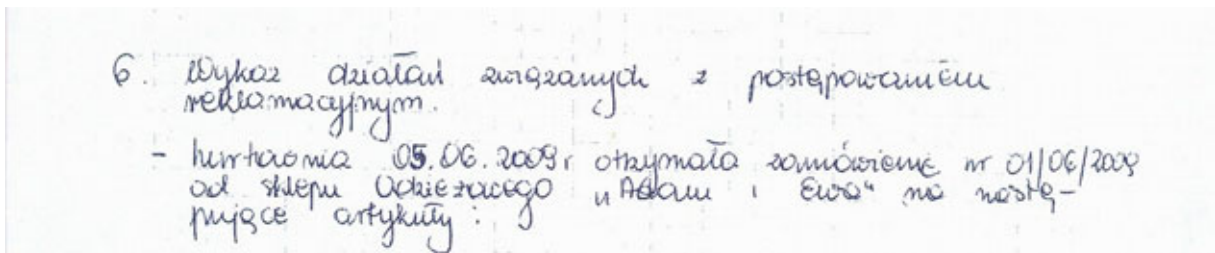 6. Wykaz działań związanych z postępowaniem
reklamacyjnym.
- hurtownia 05.06.2009r otrzymała zamówienie nr 01/06/2009
od sklepu Odzieżowego „Adam i Ewa" na nastę-
pujące artykuły: